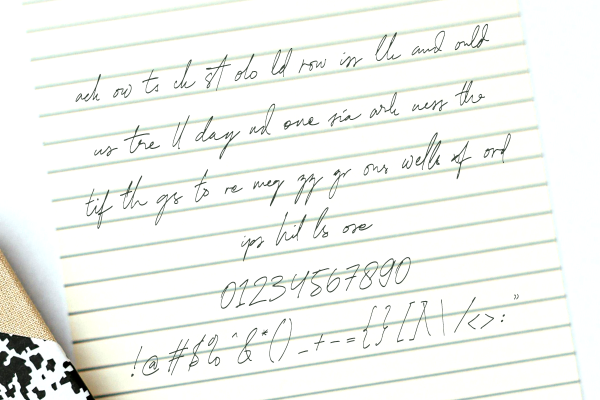 ack ow ts ck st do ld row iss lk and ould
us tre ll day nd one sia ark ness the
tif th gs to re meg zy gr ons wells of ord
ips hil ls ose
01234567890
!@#$%^&*()_+-={}[]\|/<>:"